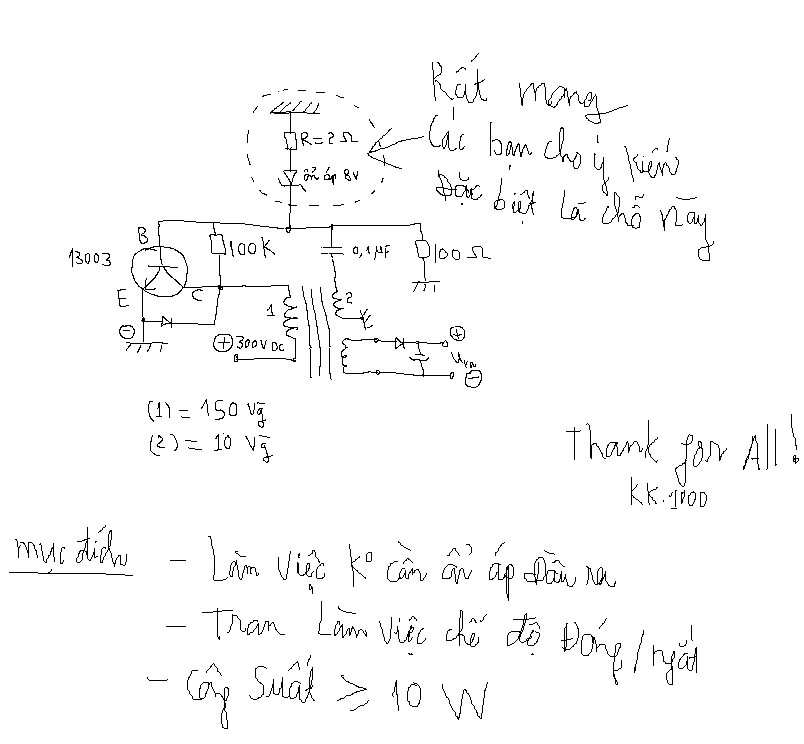 Rất mong
Các bạn cho ý kiến
Đặc biệt là chỗ này
R=2Ω
ổn áp 8V
B
13003
100K
0,1µF
100Ω
E
C
1
2
⊖
⊕ 300V DC
⊕
Ura
⊖
(1) = 150 Vg̃
(2) = 10 Vg̃
Thank for All!
KK.1000
mục đích
- Làm việc K° cần ổn áp Đầu ra
- Tran Làm việc chế độ Đóng/ngắt
- Công Suất ≥ 10 W